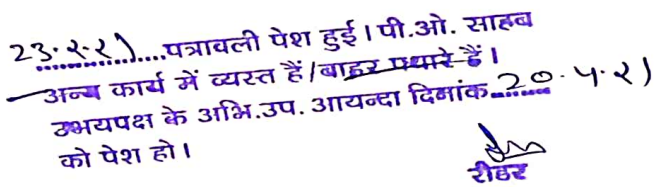 23.2.21....पत्रावली पेश हुई। पी.ओ. साहब
अन्य कार्य में व्यस्त हैं/बाहर पधारे हैं।
उभयपक्ष के अभि.उप. आयन्दा दिनांक...20.4.21
को पेश हो।
रीडर